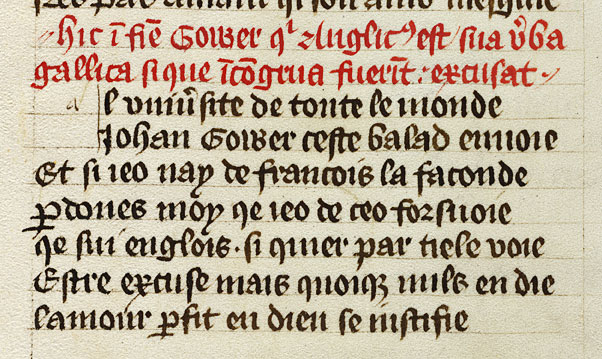 Hic in fine Gower qui Anglicus est sua verba
gallica si que incongrua fuerint excusat
al universite de toute le monde
Johan Gower ceste balad envoie
Et si ieo nay de francois la faconde
pardones moy qe ieo de ceo forsvoie
qe sui englois · si quier par tiele voie
Estre excuse mais quoique nuls en die
lamour parfit en dieu se iustifie